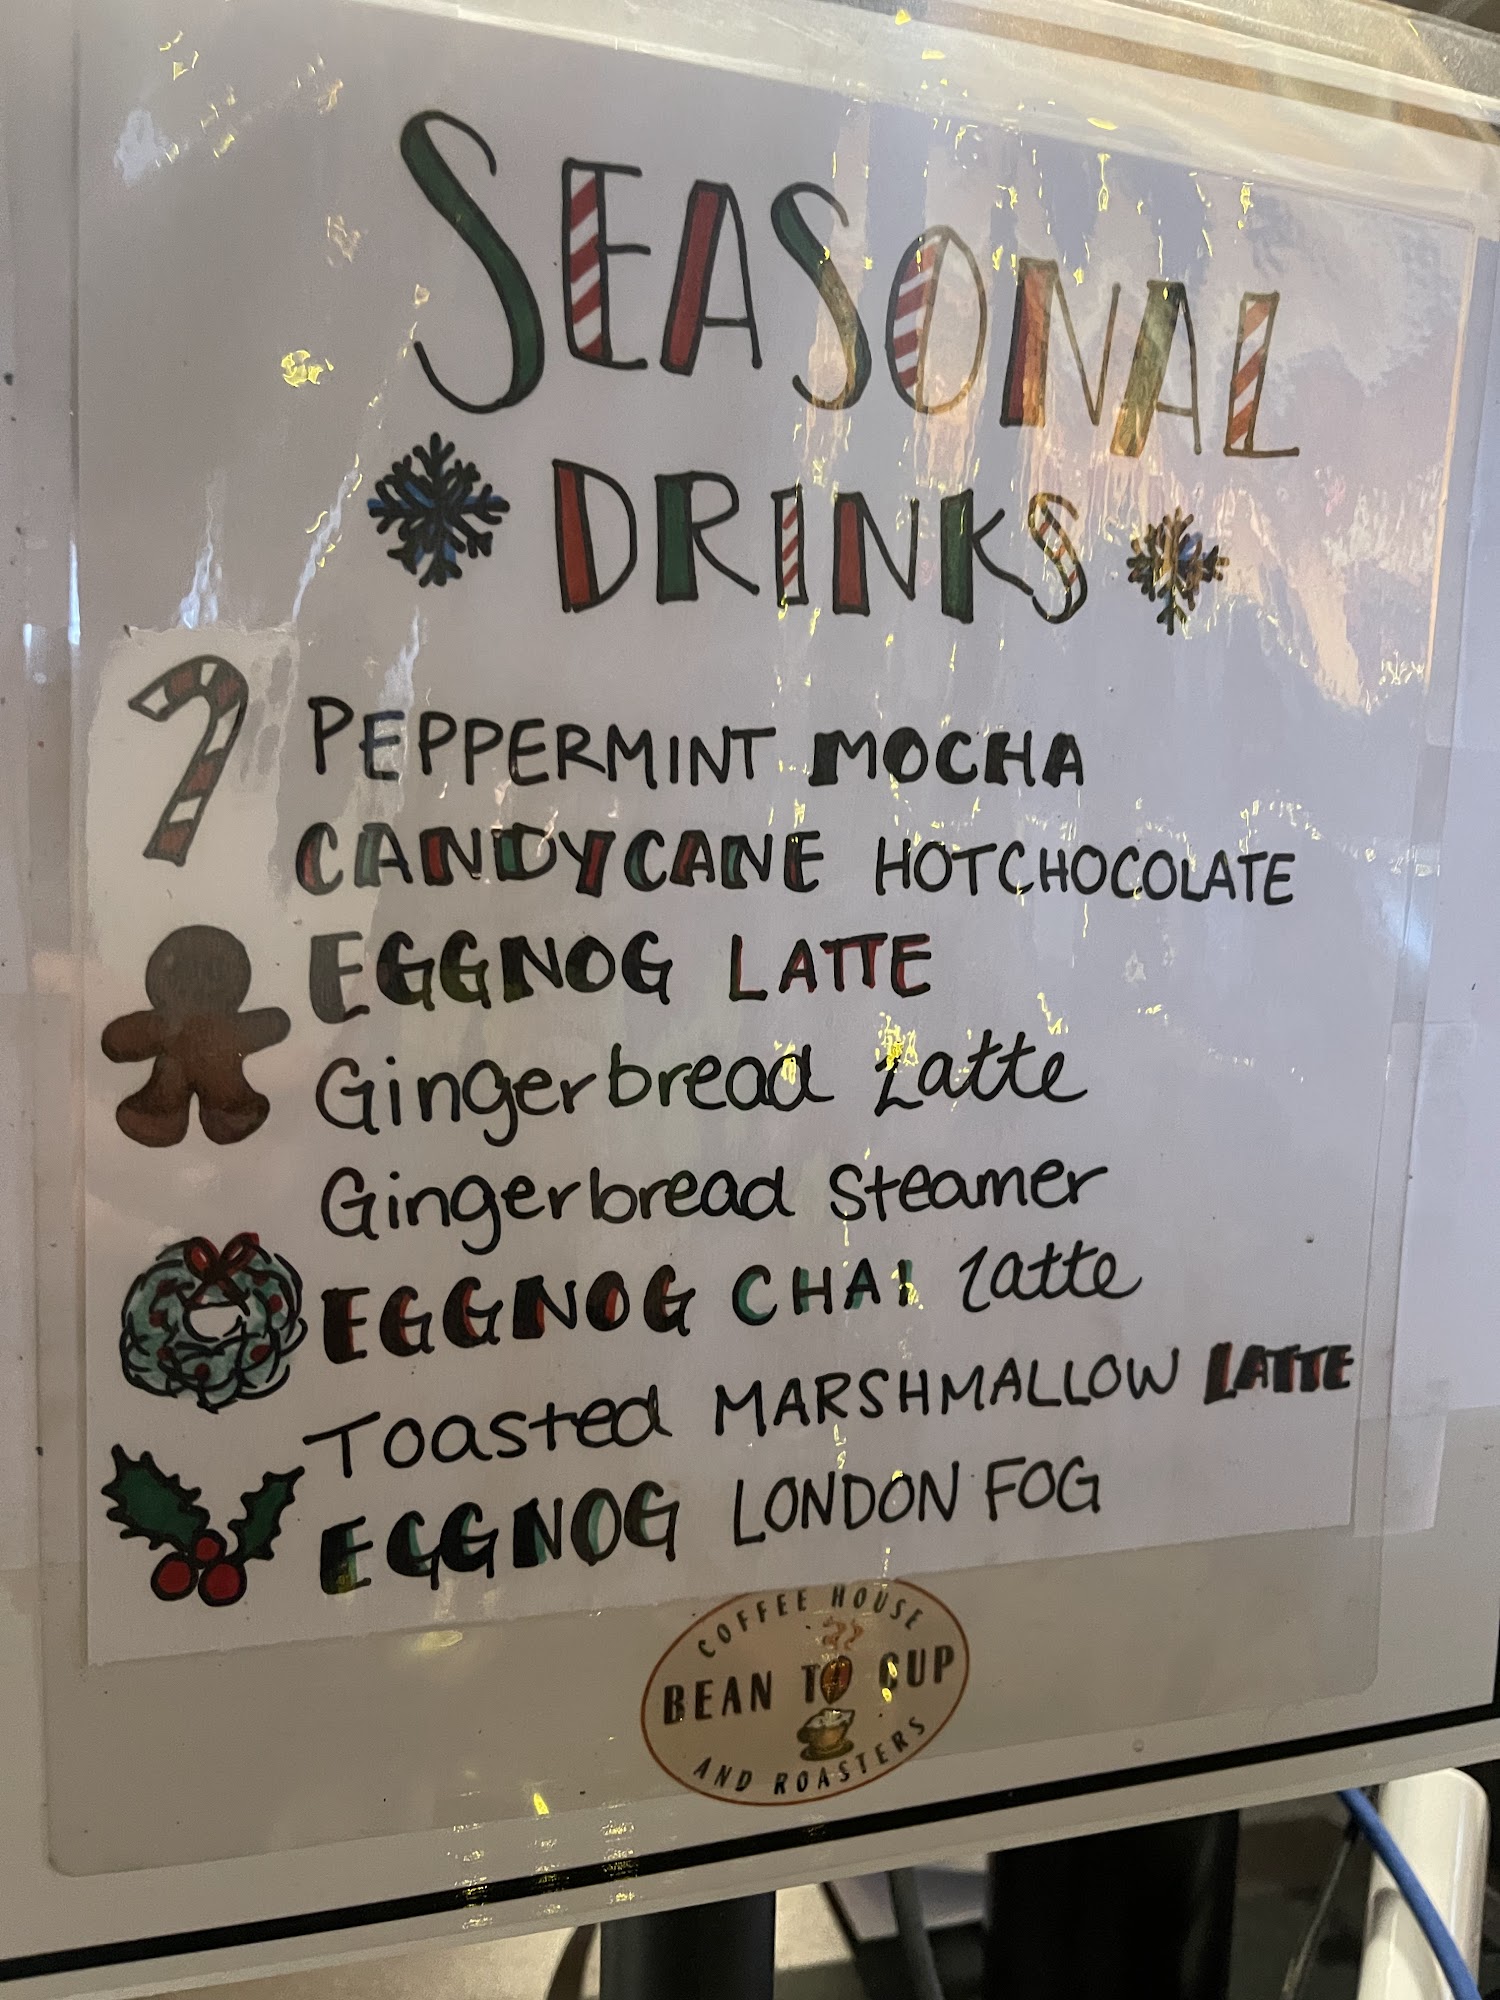 SEASONAL
DRINKS
PEPPERMINT MOCHA
CANDYCANE HOTCHOCOLATE
EGGNOG LATTE
Gingerbread Latte
Gingerbread Steamer
EGGNOG CHAI latte
Toasted MARSHMALLOW LATTE
EGGNOG LONDON FOG
COFFEE HOUSE
BEAN TO CUP
AND ROASTERS